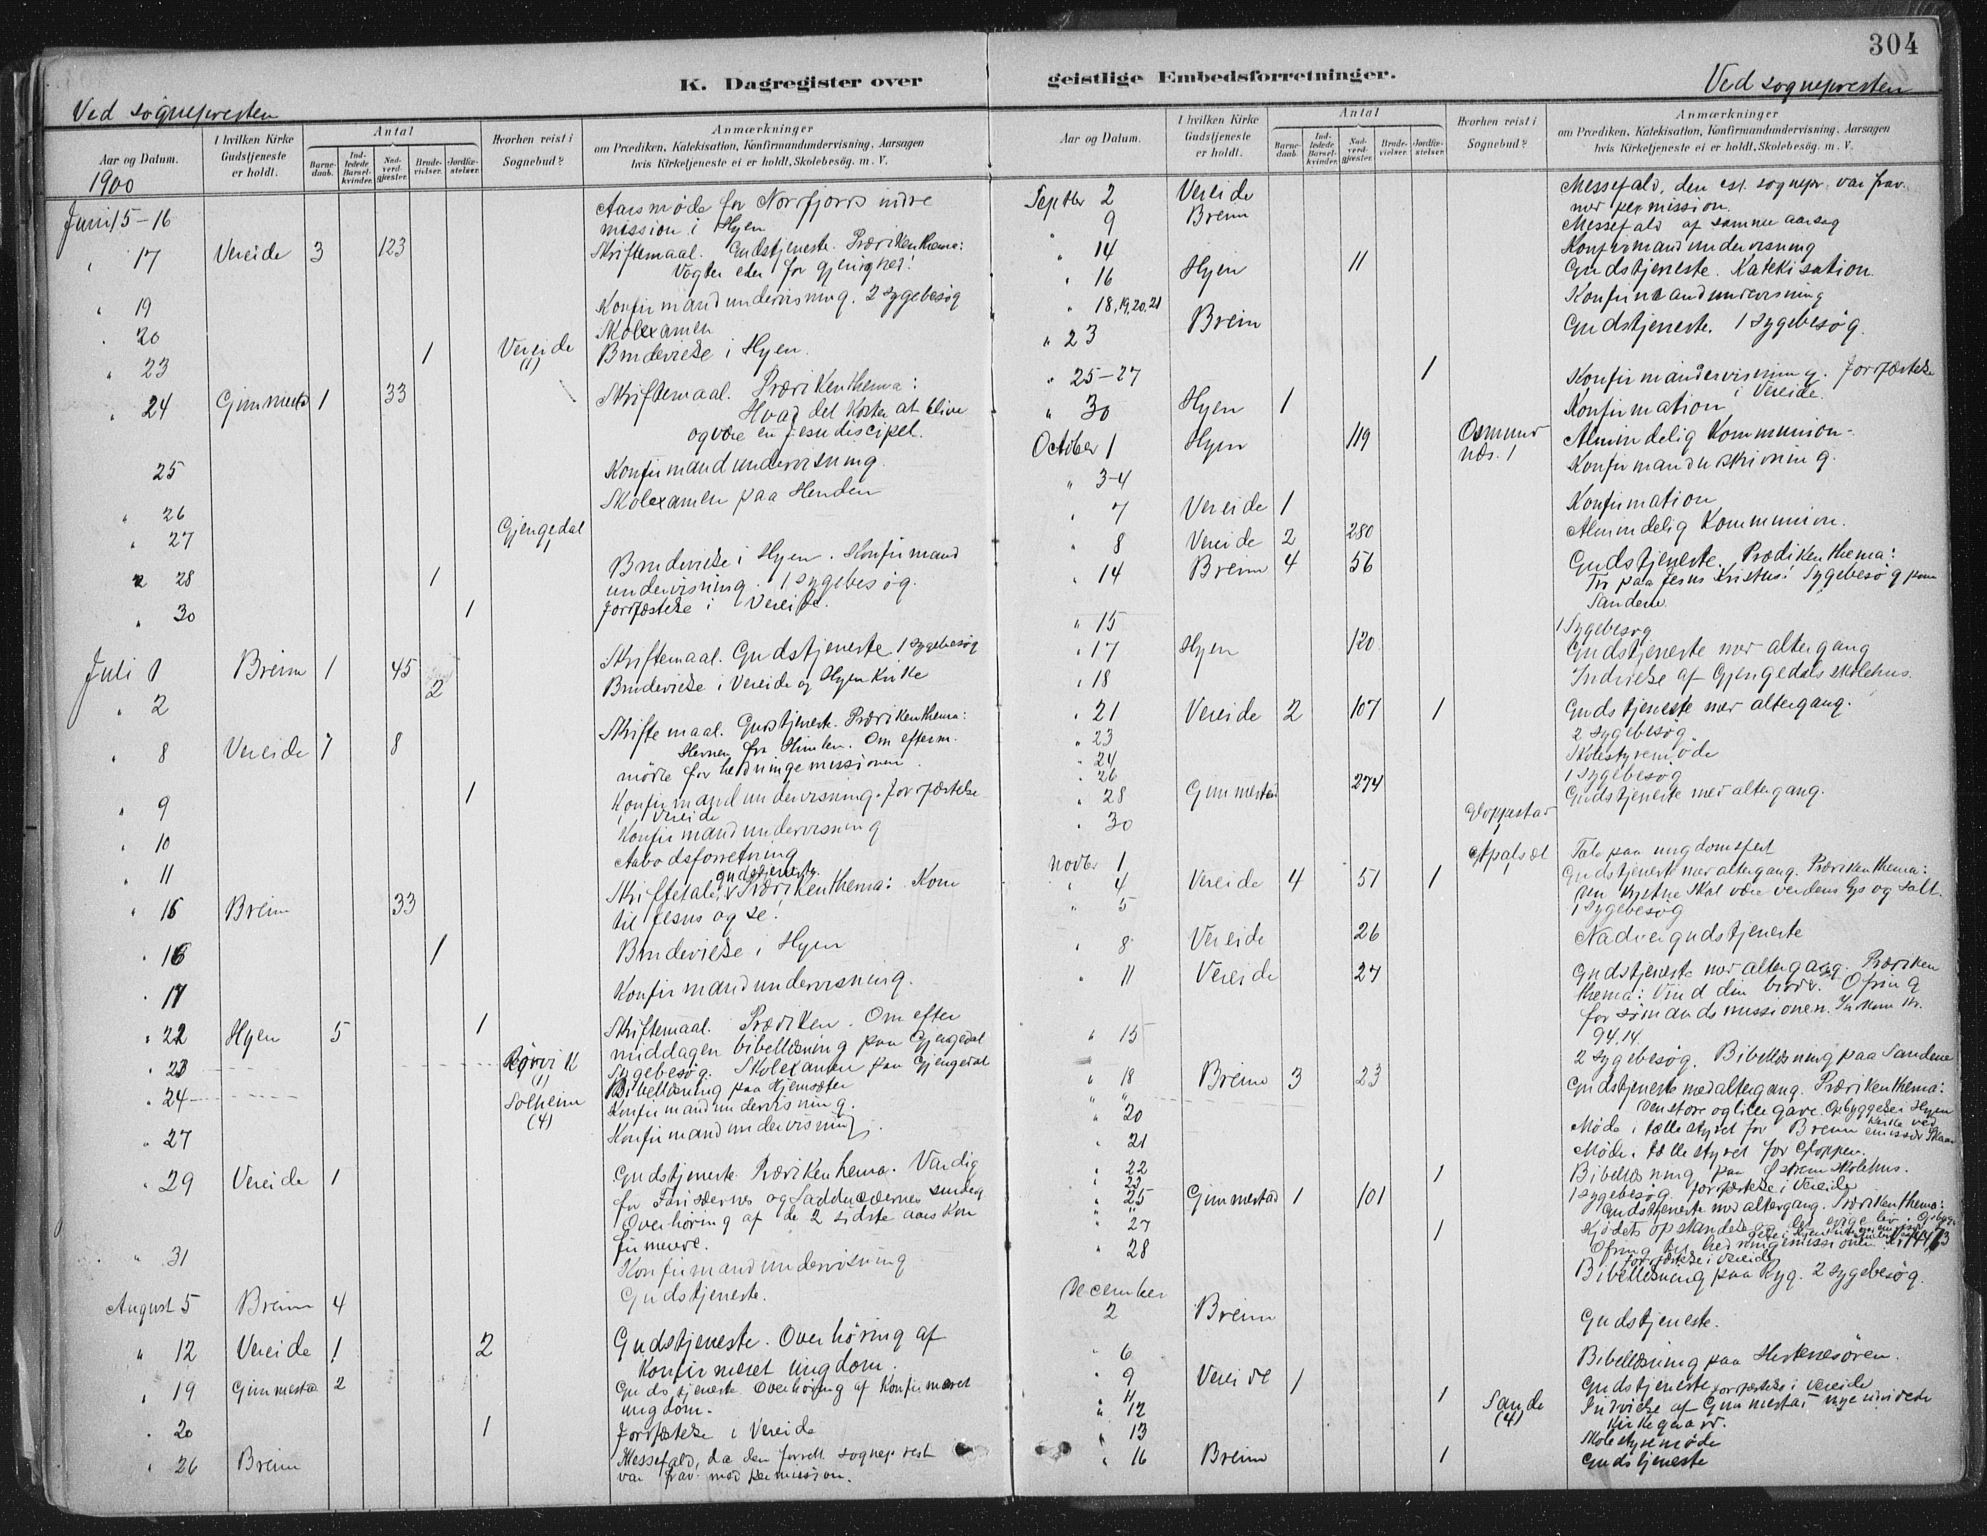 304
K. Dagregister over geistlige Embedsforretninger.
Ved sognepresten
Ved sognepresten
Aar og Datum.
I hvilken Kirke Gudstjeneste er holdt.
Antal
Barnedaab.
Indledede Barselkvinder.
Nadverdgjæster.
Brudevielser.
Jordfæstelser.
Hvorhen reist i Sognebud?
Anmærkninger
om Prædiken, Katekisation, Konfirmandundervisning, Aarsagen
hvis Kirketjeneste ei er holdt, Skolebesøg. m. V.
1900
Juni 15-16 Aarsmøde for Nordfjords indre
mission i Hyen
" 17 Vereide 3 123 Skriftemaal. Gudstjeneste. Prædikenthema:
Vogter eder for gjerighed!
" 19 Konfirmandundervisning. 2 sygebesøg
" 20 Skolexamen
" 23 1 Vereide (1) Brudevielse i Hyen.
" 24 Gimmestad 1 33 Skriftemaal. Prædikenthema:
Hvad det koster at blive
og være en Jesu discipel.
25 Konfirmandundervisning.
" 26 Skolexamen paa Henden
" 27 Gjengedal 1
" 28 1 Brudevielse i Hyen. Konfirmand
undervisning. 1 sygebesøg.
" 30 1 Jordfæstelse i Vereide.
Juli 1 Breim 1 45 Skriftemaal. Gudstjeneste 1 sygebesøg
" 2 2 Brudevielse i Vereide og Hyen Kirke
" 8 Vereide 7 8 Skriftemaal. Gudstjeneste. Prædikenthema:
fra Himlen. Om efterm.
møde for hedningemissionen.
" 9 1 Konfirmandundervisning. Jordfæstelse
i Vereide
" 10 Konfirmandundervisning
" 11 Aabodsforretning
" 15 Breim 33 Skriftetale, gudstjeneste. Prædikenthema: Kom
til Jesus og se!
" 16 1 Brudevielse i Hyen
" 17 Konfirmandundervisning.
" 22 Hyen 5 1 Skriftemaal. Prædiken. Om efter
middagen bibellæsning paa Gjengedal
" 23 Rørvik (1) Sygebesøg. Skolexamen paa Gjengedal
" 24 Solheim (4) Bibellæsning paa Hjemsæter
Konfirmandundervisning.
" 27 Konfirmandundervisning.
" 29 Vereide 1 Gudstjeneste. Prædikenthema. Vandig
for Farisæernes og Sadducæernes surdeig
Overhøring af de 2 sidste aars Kon
firmerede.
" 31 Konfirmandundervisning
August 5 Breim 4 Gudstjeneste.
" 12 Vereide 1 2 Gudstjeneste. Overhøring af
Konfirmeret ungdom.
" 19 Gimmestad 2 Gudstjeneste Overhøring af Konfirmeret
ungdom.
" 20 1 Jordfæstelse i Vereide
" 26 Breim Messefald, da den sogneprest
var frav. med permission.
Aar og Datum.
I hvilken Kirke Gudstjeneste er holdt.
Antal
Barnedaab.
Indledede Barselkvinder.
Nadverdgjæster.
Brudevielser.
Jordfæstelser.
Hvorhen reist i Sognebud?
Anmærkninger
om Prædiken, Katekisation, Konfirmandundervisning, Aarsagen
hvis Kirketjeneste ei er holdt, Skolebesøg. m. V.
Septbr 2 Vereide Messefald, den sognepr. var frav.
med permission.
" 9 Breim Messefald af samme aarsag
" 14 Konfirmandundervisning
" 16 Hyen 11 Gudstjeneste. Katekisation
" 18, 19, 20, 21 Konfirmandundervisning
" 23 Breim Gudstjeneste. 1 sygebesøg.
" 25-27 1 Konfirmandervisning. Jordfæstelse
i Vereide.
" 30 Hyen 1 Konfirmation
October 1 Hyen 119 Osmundnæs. 1 Almindelig Kommunion.
" 3-4 Konfirmandudskrivning.
" 7 Vereide 1 Konfirmation
" 8 Vereide 2 280 Almindelig Kommunion.
" 14 Breim 4 56 Gudstjeneste. Prædikenthema:
Tro paa Jesus Kristus! Sygebesøg paa
Sandene
" 15 1 Sygebesøg
" 17 Hyen 120 Gudstjeneste med altergang
" 18 Indvielse af Gjengedals skolehus.
" 21 Vereide 2 107 1 Gudstjeneste med altergang.
" 23 2 sygebesøg
" 24 Skolestyremøde
" 26 1 sygebesøg
" 28 Gimmestad 274 Gudstjeneste med altergang.
" 30 Gloppestad 1
Novbr 1 Apalsæt Tale paa ungdomsfest
" 4 Vereide 4 51 1 Gudstjeneste med altergang. Prædikenthema:
En kristne skal være verdens lys og salt.
" 5 1 sygebesøg
" 8 Vereide 26 Nadvergudstjeneste
" 11 Vereide 27 Gudstjeneste med altergang. Prædiken
thema: Vind din broder. Ofring
for sømandsmissionen. Indkom kr.
94,14.
" 15 2 sygebesøg. Bibellæsning paa Sandene
" 18 Breim 3 23 Gudstjeneste med altergang. Prædikenthema:
Den store og lille gave. Opbyggelse i Hyen
kirke ved
" 20 Møde i tællestyret for Breim
" 21 Møde i tællestyret for Gloppen.
" 22 1 Bibellæsning paa skolehus.
" 23 1 sygebesøg. Jordfæstelse i Vereide
" 25 Gimmestad 1 101 Gudstjeneste med altergang. Prædikenthema:
Kjødets opstandelse og det evige liv.
Ofring til hedningemissionen
" 27 1 Jordfæstelse i Vereide
" 28 Bibellæsning paa Ryg. 2 sygebesøg.
December
2 Breim Gudstjeneste.
" 6 Bibellæsning paa Hestenesøren.
" 9 Vereide 1 Gudstjeneste
" 11 1 Jordfæstelse i Vereide
" 12 Sande (4) Indvielse af Gimmestad nye udvidede
kirkegaard.
" 13 Skolestyremøde
" 16 Breim 1 Gudstjeneste